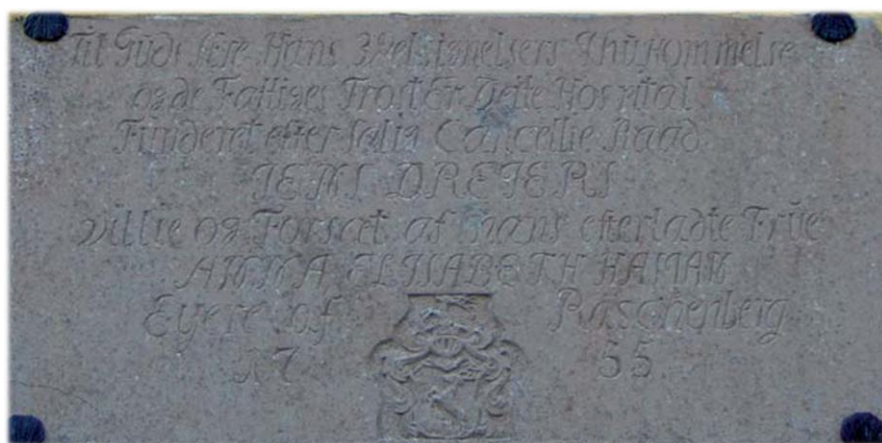 Til Guds Ære Hans Velsignelsers Ihukommelse
og de Fattiges Trøst Er Dette Hospital
Funderet efter Salig Cancellie Raad
JENS DREIERS
Villie og Forsæt af Hans efterladte Frue
ANNA ELISABETH HASSAN
Eyere af Raschenberg
17 55